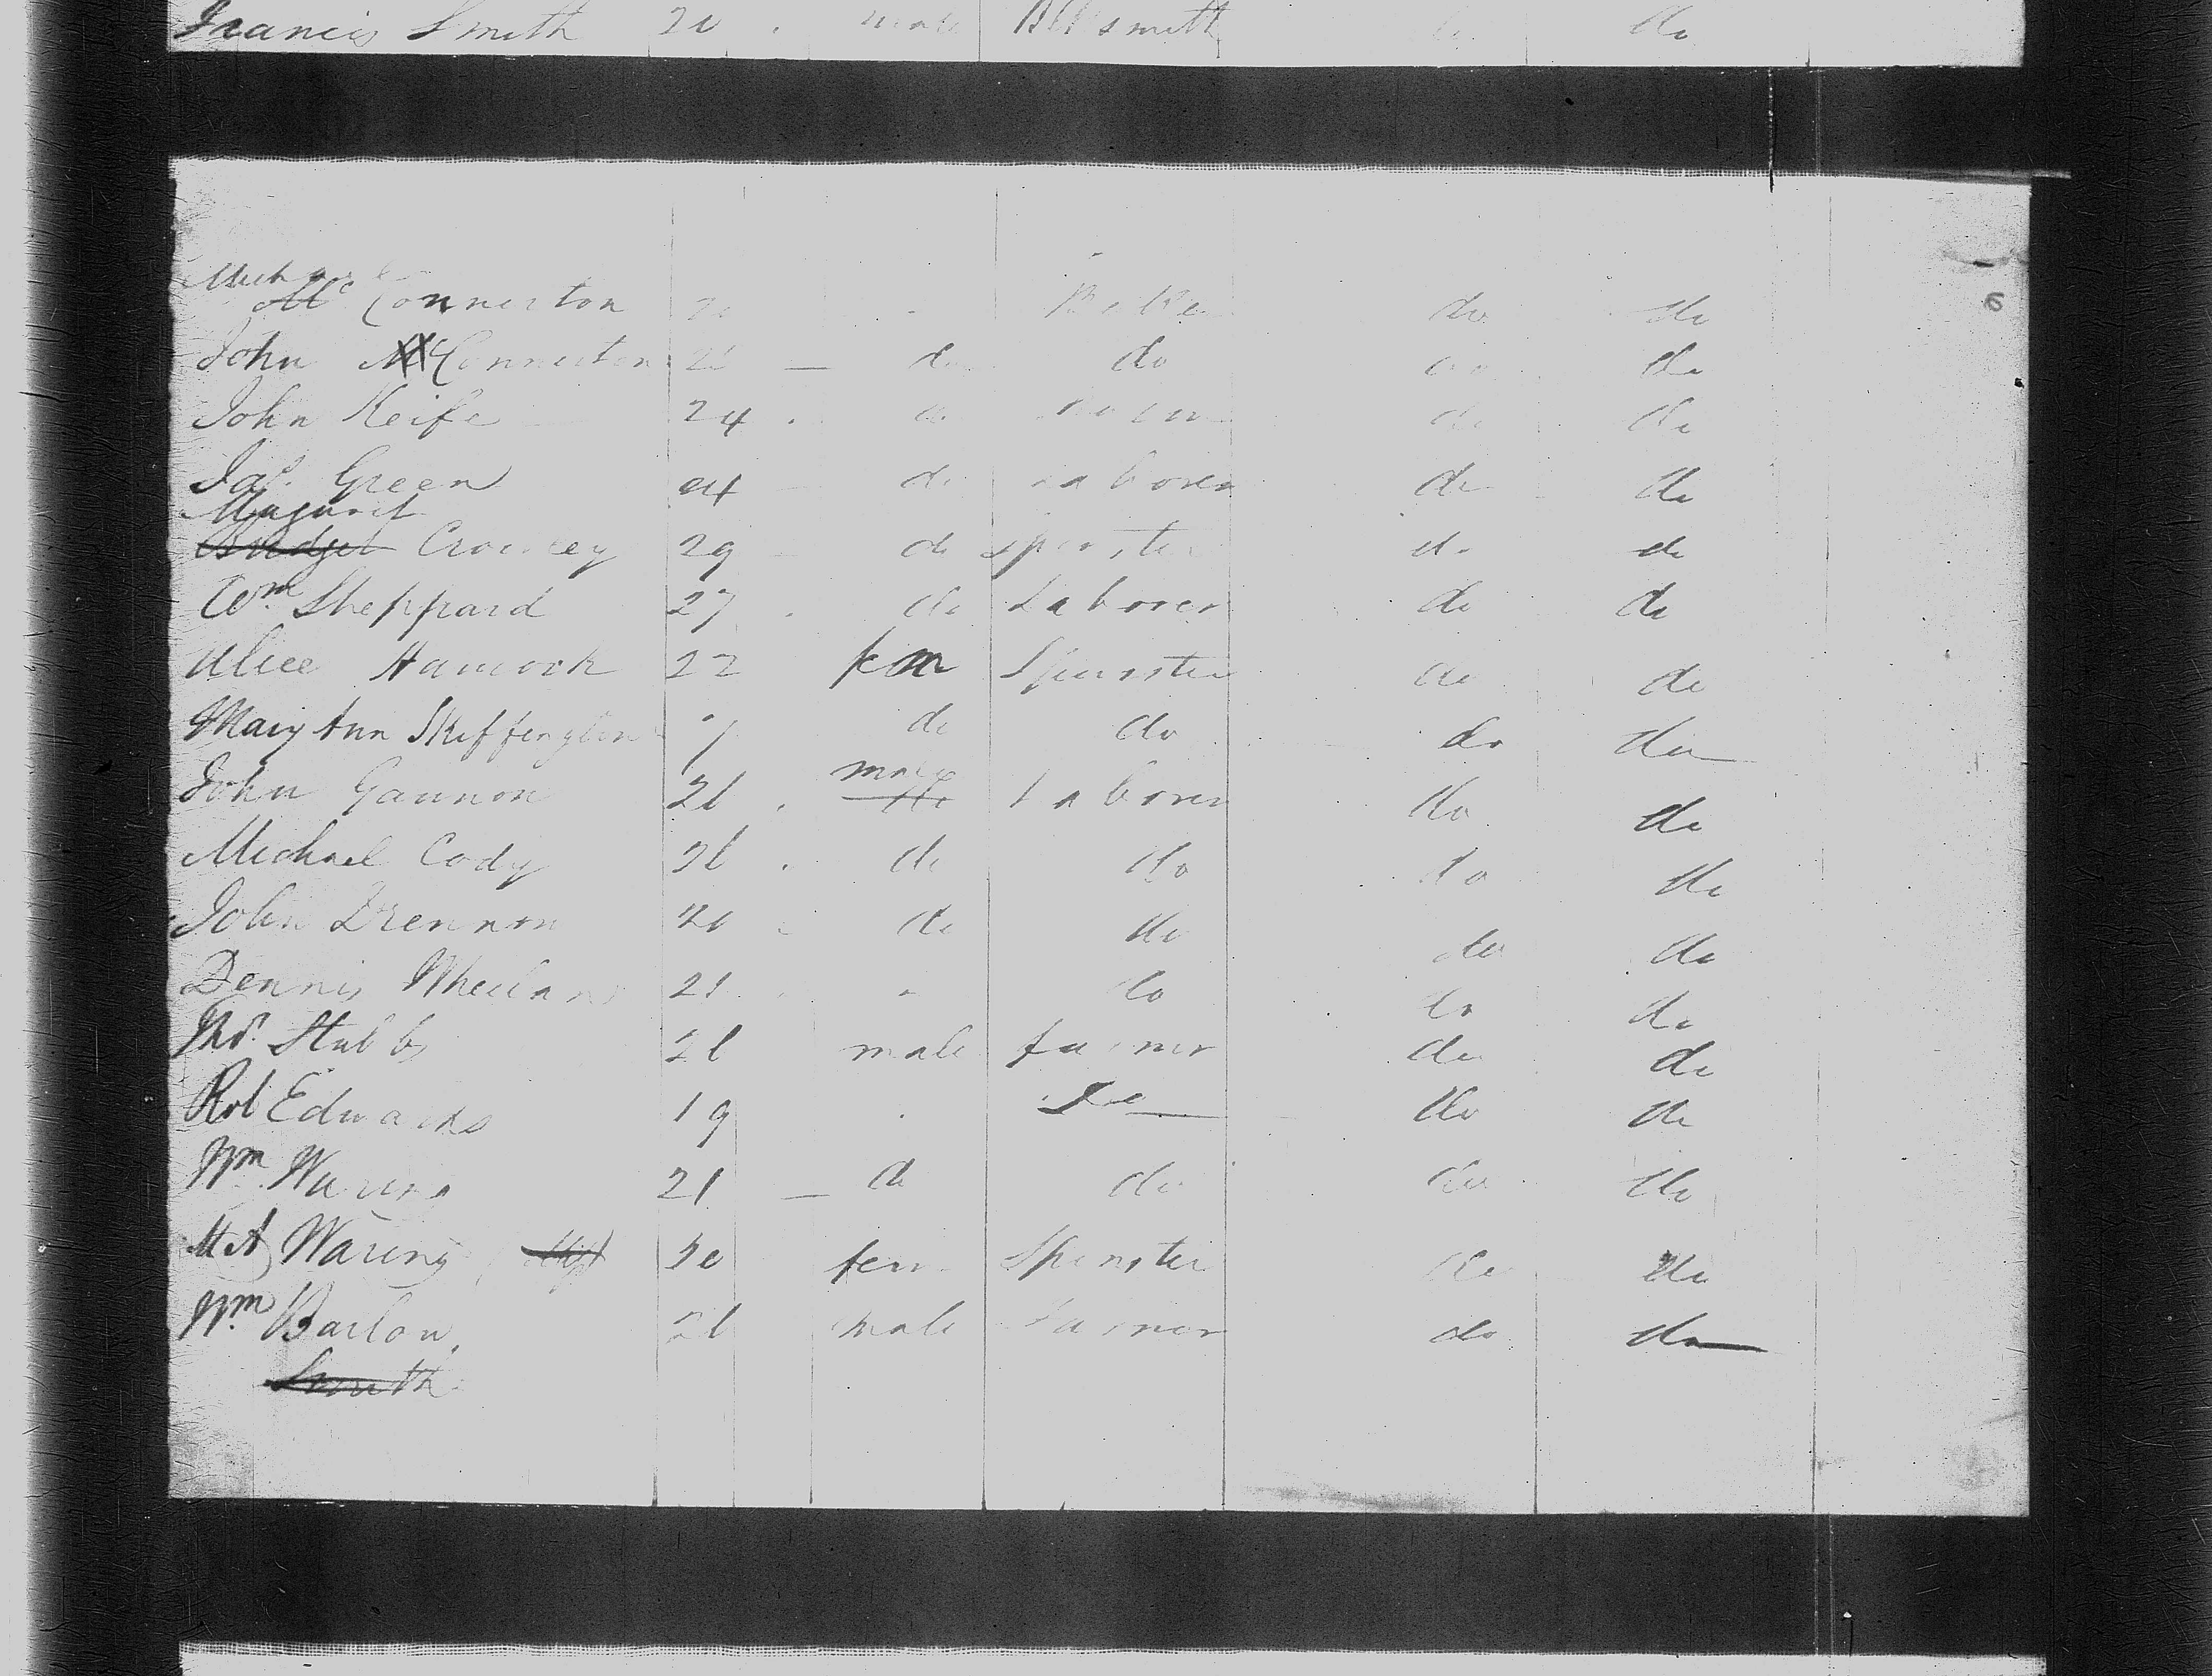 Francis Smith 20 male Blksmith do do
Michael
Mc Connerton 20 Baker do do
6
John Mc Connerton 2 do do do do
John Keife 24 do do do
Jas. Green 24 do Laborer do do
Margaret
Bridget Crowley 29 do Spinster do do
Wm Sheppard 27 do Laborer do do
Alice Hancock 22 fem Spinster do do
Mary Ann Skiffington do do do do
male
John Gannon 26 do Laborer do do
Michael Cody 26 do do do do
John Drennon 20 do do do do
Dennis Wheelan 21 do do do
Thos. Stubbs 26 male farmer do do
Rob Edwards 19 Do do do
Wm. Waring 21 do do do do
M A Waring 30 fem Spinster do do
Wm Barlow 26 male Farmer do do
Smith